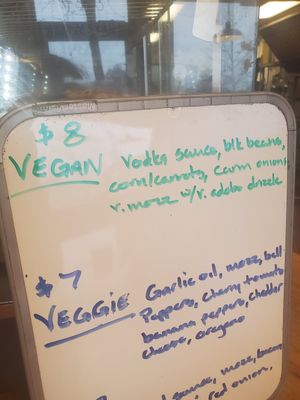 $8
VEGAN
Vodka sauce, blk beans,
corn/carrots, carm onions,
v. mozz w/v. adobo drizzle
$7
VEGGIE
Garlic oil, mozz, bell
Peppers, cherry tomato
banana peppers, cheddar
cheese, oregano
sauce, mozz, bacon
red onion,